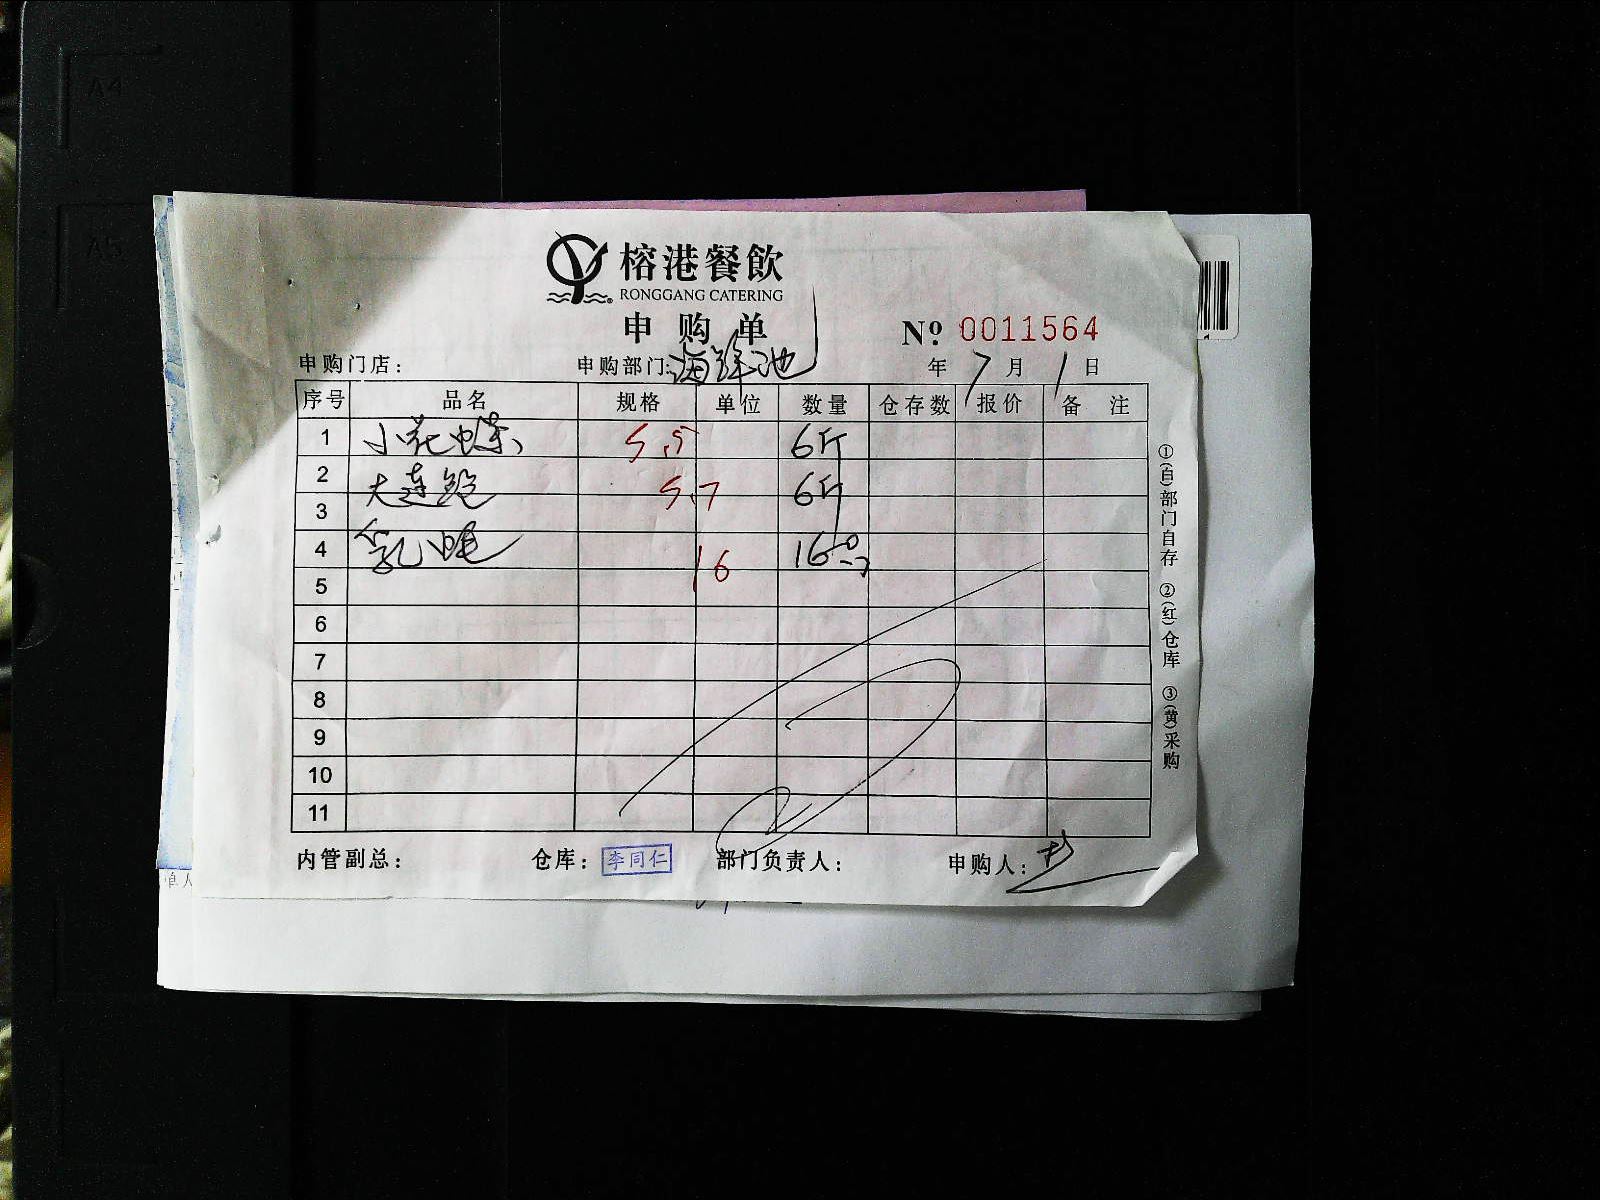 A4
A5
榕港餐飲
RONGGANG CATERING
申购单
Nº 0011564
申购门店： 申购部门：海鲜池 年 7 月 1 日
序号 品名 规格 单位 数量 仓存数 报价 备注
1 小花螺 5.5 6斤
2 大连鲍 5.7 6斤
3
4 乳 16 16
5
6
7
8
9
10
11
内管副总： 仓库：李同仁 部门负责人： 申购人：
①(白)部门自存 ②(红)仓库 ③(黄)采购
单人